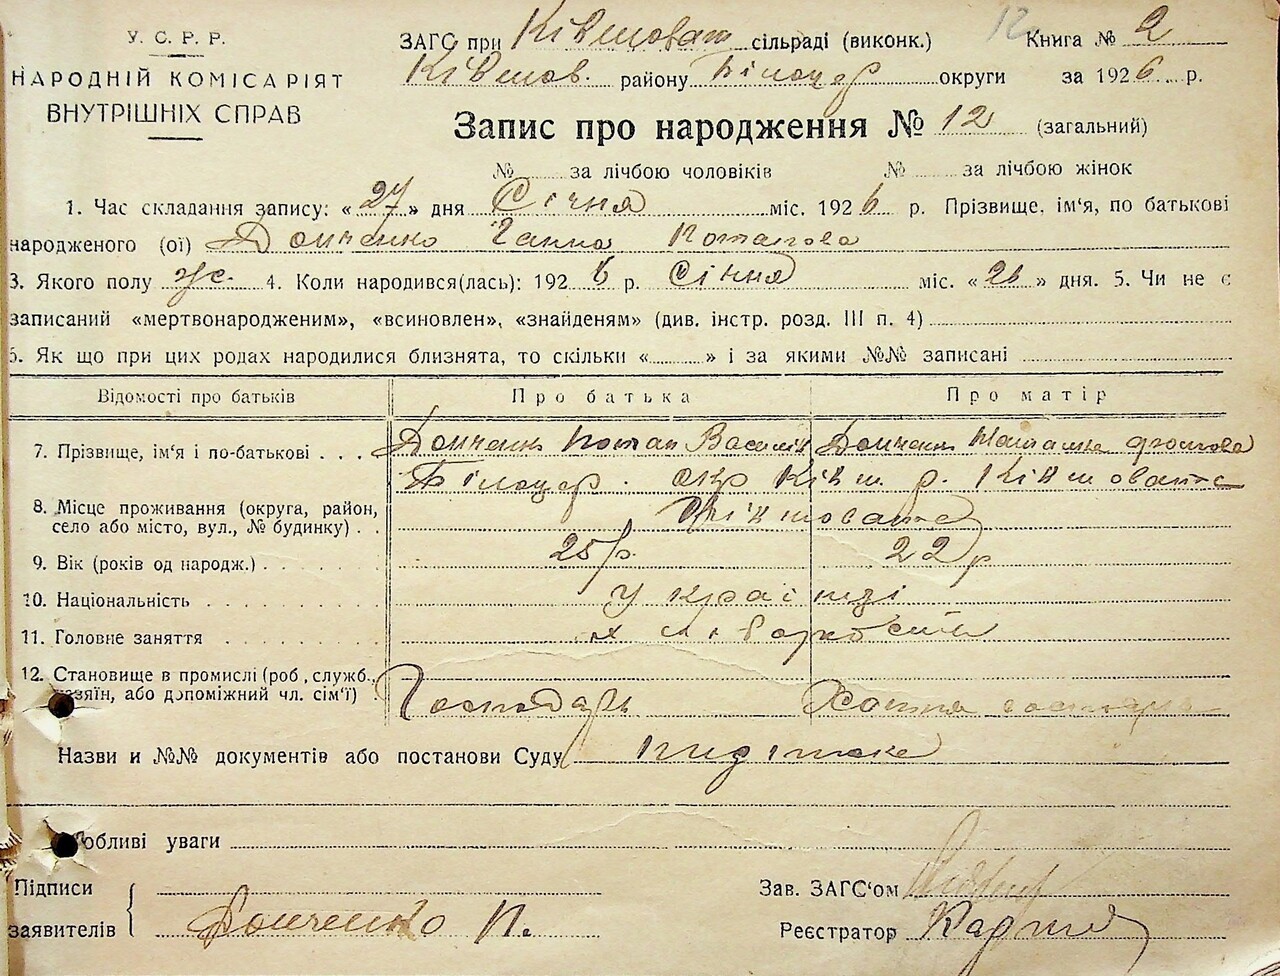 У. С. Р. Р.
НАРОДНІЙ КОМІСАРІЯТ
ВНУТРІШНІХ СПРАВ
12
ЗАГС при Ківшоват сільраді (виконк.) Книга № 2
Ківшов. району Білоцер округи за 1926 р.
Запис про народження № 12 (загальний)
№ за лічбою чоловіків № за лічбою жінок
1. Час складання запису: «27» дня Січня міс. 1926 р. Прізвище, ім'я, по батькові
народженого (ої) Донченко Ганна Потапова
3. Якого полу ж. 4. Коли народився(лась): 1926 р. Січня міс. «26» дня. 5. Чи не є
записаний «мертвонародженим», «всиновлен», «знайденям» (див. інстр. розд. III п. 4)
6. Як що при цих родах народилися близнята, то скільки « » і за якими №№ записані
Відомості про батьків Про батька Про матір
7. Прізвище, ім'я і по-батькові . . . Донченко Потап Василів Донченко
Білоцер. окр Ківш. р. Ківшовата
8. Місце проживання (округа, район,
село або місто, вул., № будинку) . . Ківшовата
9. Вік (років од народж.) 25 р. 22 р
10. Національність Україн
11. Головне заняття хліборобств
12. Становище в промислі (роб., служб.,
хазяїн, або допоміжний чл. сім'ї) Господарь Хатня
Назви и №№ документів або постанови Суду
Особливі уваги
Підписи Зав. ЗАГС'ом
заявителів Донченко П. Реєстратор